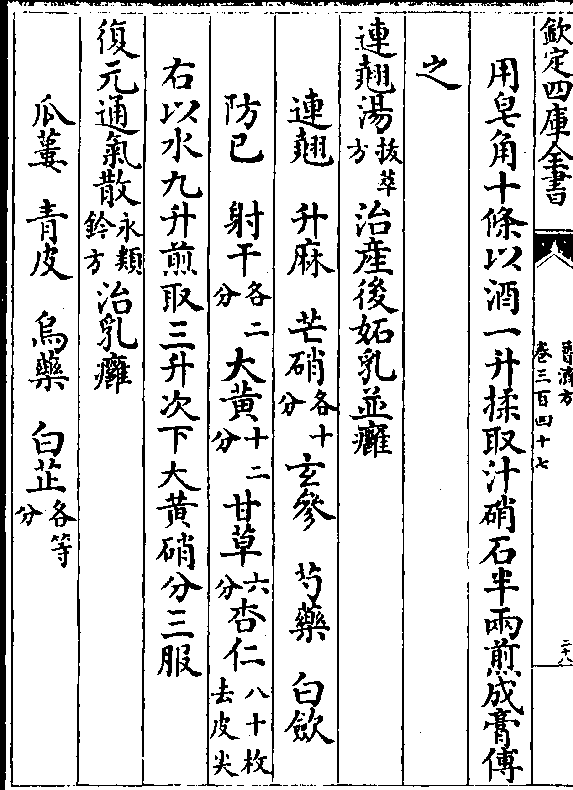 欽定四庫全書
普濟方
卷三百四十七
二十八
用皂角十條以酒一升揉取汁硝石半兩煎成膏傅
之
連翹湯拔萃方治產後妬乳並癰
連翹 升麻 芒硝各十分 玄參 芍藥 白歛
防已 射干各二分 大黃十二分 甘草六分 杏仁八十枚去皮尖
右以水九升煎取三升次下大黃硝分三服
復元通氣散永類鈐方治乳癰
瓜蔞 青皮 烏藥 白芷各等分